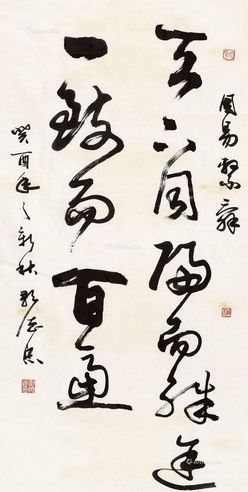 周易繫辭
天下同歸而殊途
一致而百慮
癸酉年之新秋